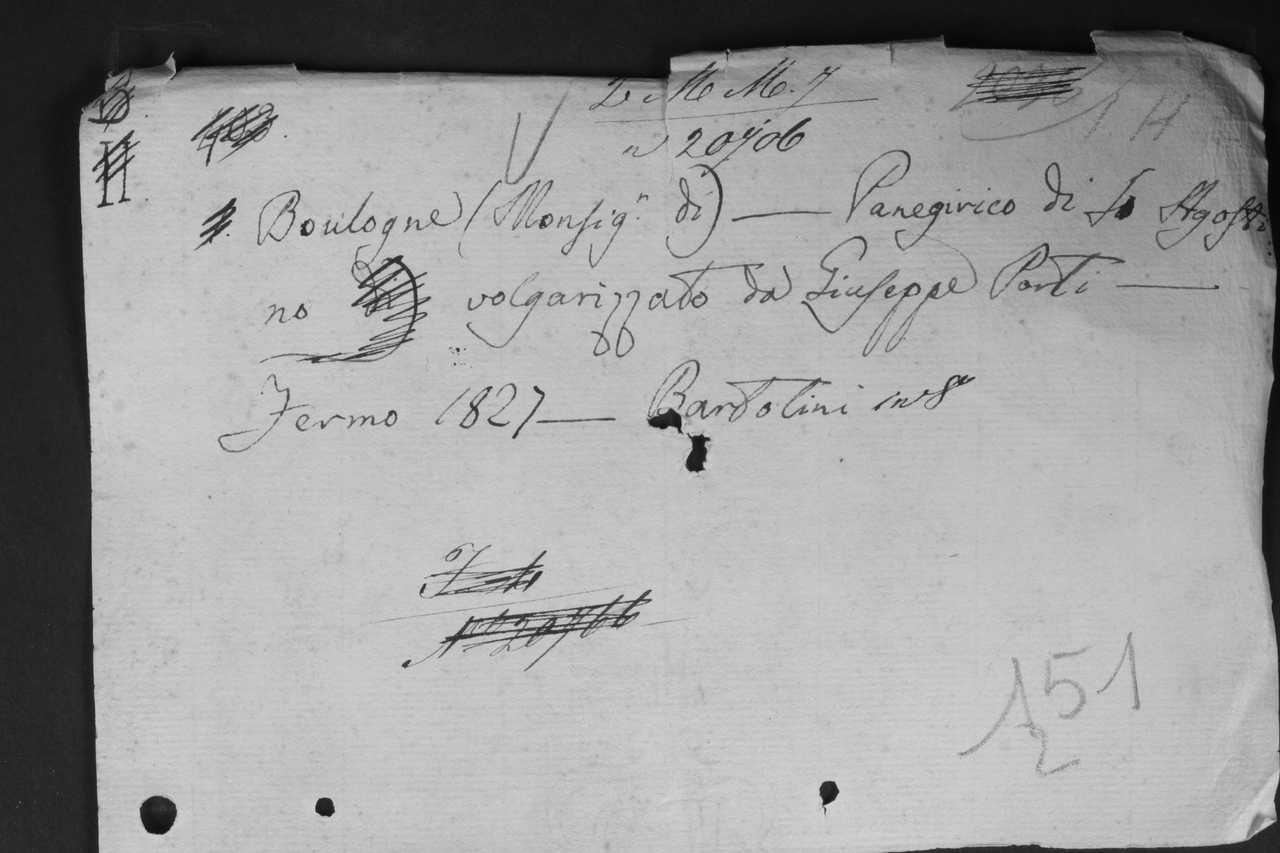 n 20706
Boulogne (Monsig.r di) — Panegirico di So Agosti
no volgarizzato da Giuseppe Porti —
Fermo 1827 — Bartolini in 8o
No 20766
151
2